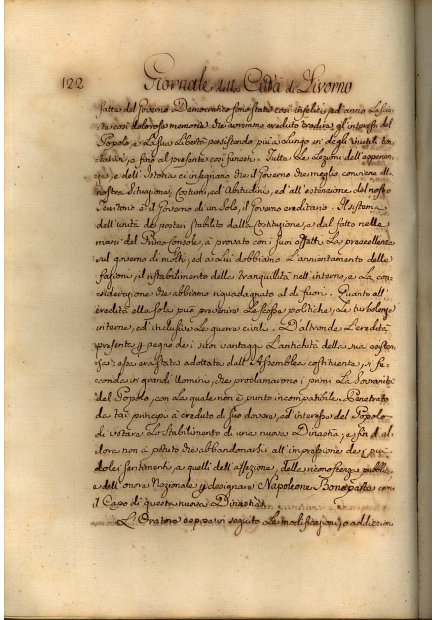 122 Giornale della Città di Livorno
fatte del Governo Democratico sono state così infelici, ed anno lascia-
te così dolorose memorie che avremmo creduto tradire gl'interessi del
Popolo, e la sua libertà persistendo più a lungo in degli inutili ten-
tativi, e fino al presente così funesti. Tutte le lezioni dell'esperien-
za, e dell'Istoria ci insegnano che il Governo che meglio conviene alla
nostra situazione, Costumi, ed Abitudini, ed all'estenzione del nostro
Territorio è il Governo di un solo, il Governo ereditario. Il sistema
dell'unità de poteri stabilito dalla Costituzione, e dal fatto nelle
mani del Primo Console, à provato con i suoi effetti la preeccellenza
sul governo di molti, ed a lui dobbiamo l'annientamento delle
fazioni, il ristabilimento della tranquillità nell'interno, e la con-
siderazione che abbiamo riguadagnato al di fuori. Quanto all'
eredità ella sola può prevenire le scosse politiche, le turbolenze
interne, ed inclusive le guerre civili. D'altronde l'eredità
presente, pegno de i suoi vantaggi l'antichità della sua esisten-
za; essa era stata adottata dall'Assemblea costituente, sì fe-
conda in grandi Uomini, che proclamarono i primi la Sovranità
del Popolo, con la quale non è punto incompatibile. Penetrato
da tai principj à creduto di suo dovere, ed interesse del Popolo
di votare lo stabilimento di una nuova Dinastia, e fin d'al-
lora non à potuto che abbandonarsi all'impressione de i più
dolci sentimenti, a quelli dell'affezione, della riconoscenza pubblica
e dell'onore Nazionale p. designare Napoleone Bonaparte come
il Capo di questa nuova Dinastia.
L'Oratore espose in seguito le modificazioni, o addizioni